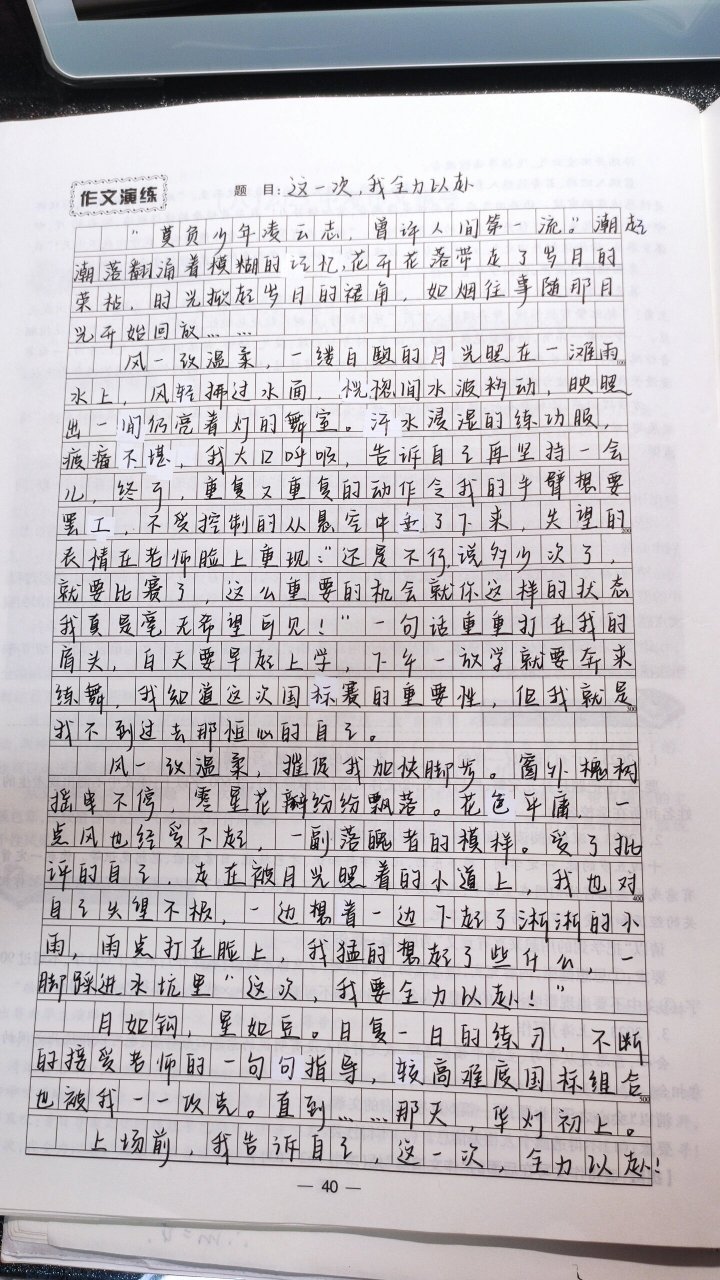 作文演练 题 目：这一次，我全力以赴
“莫负少年凌云志，曾许人间第一流。”潮起
潮落翻涌着模糊的记忆，花开花落带走了岁月的
荣枯，时光掀起岁月的裙角，如烟往事随那月
光开始回放……
风一致温柔，一缕白驹的月光照在一滩雨
水上，风轻拂过水面，恍惚间水波构动，映照
出一间仍亮着灯的舞室。汗水浸湿的练功服，
疲惫不堪，我大口呼吸，告诉自己再坚持一会
儿，终于，重复又重复的动作令我的手臂想要
罢工，不受控制的从悬空中垂了下来，失望的
表情在老师脸上重现：“还是不行，说多少次了，
就要比赛了，这么重要的机会就你这样的状态
我真是毫无希望可见！”一句话重重打在我的
肩头，白天要早起上学，下午一放学就要奔来
练舞，我知道这次国标赛的重要性，但我就是
找不到过去那恒心的自己。
风一致温柔，摧促我加快脚步。窗外槐树
摇曳不停，零星花瓣纷纷飘落。花色平庸，一
点风也经受不起，一副落魄者的模样。受了批
评的自己，走在被月光照着的小道上，我也对
自己失望不极，一边想着一边下起了淅淅的小
雨，雨点打在脸上，我猛的想起了些什么，一
脚踩进水坑里“这次，我要全力以赴！”
月如钩，星如豆。日复一日的练习，不断
的接受老师的一句句指导，较高难度国标组合
也被我一一攻克。直到……那天，华灯初上。
上场前，我告诉自己，这一次，全力以赴！
— 40 —